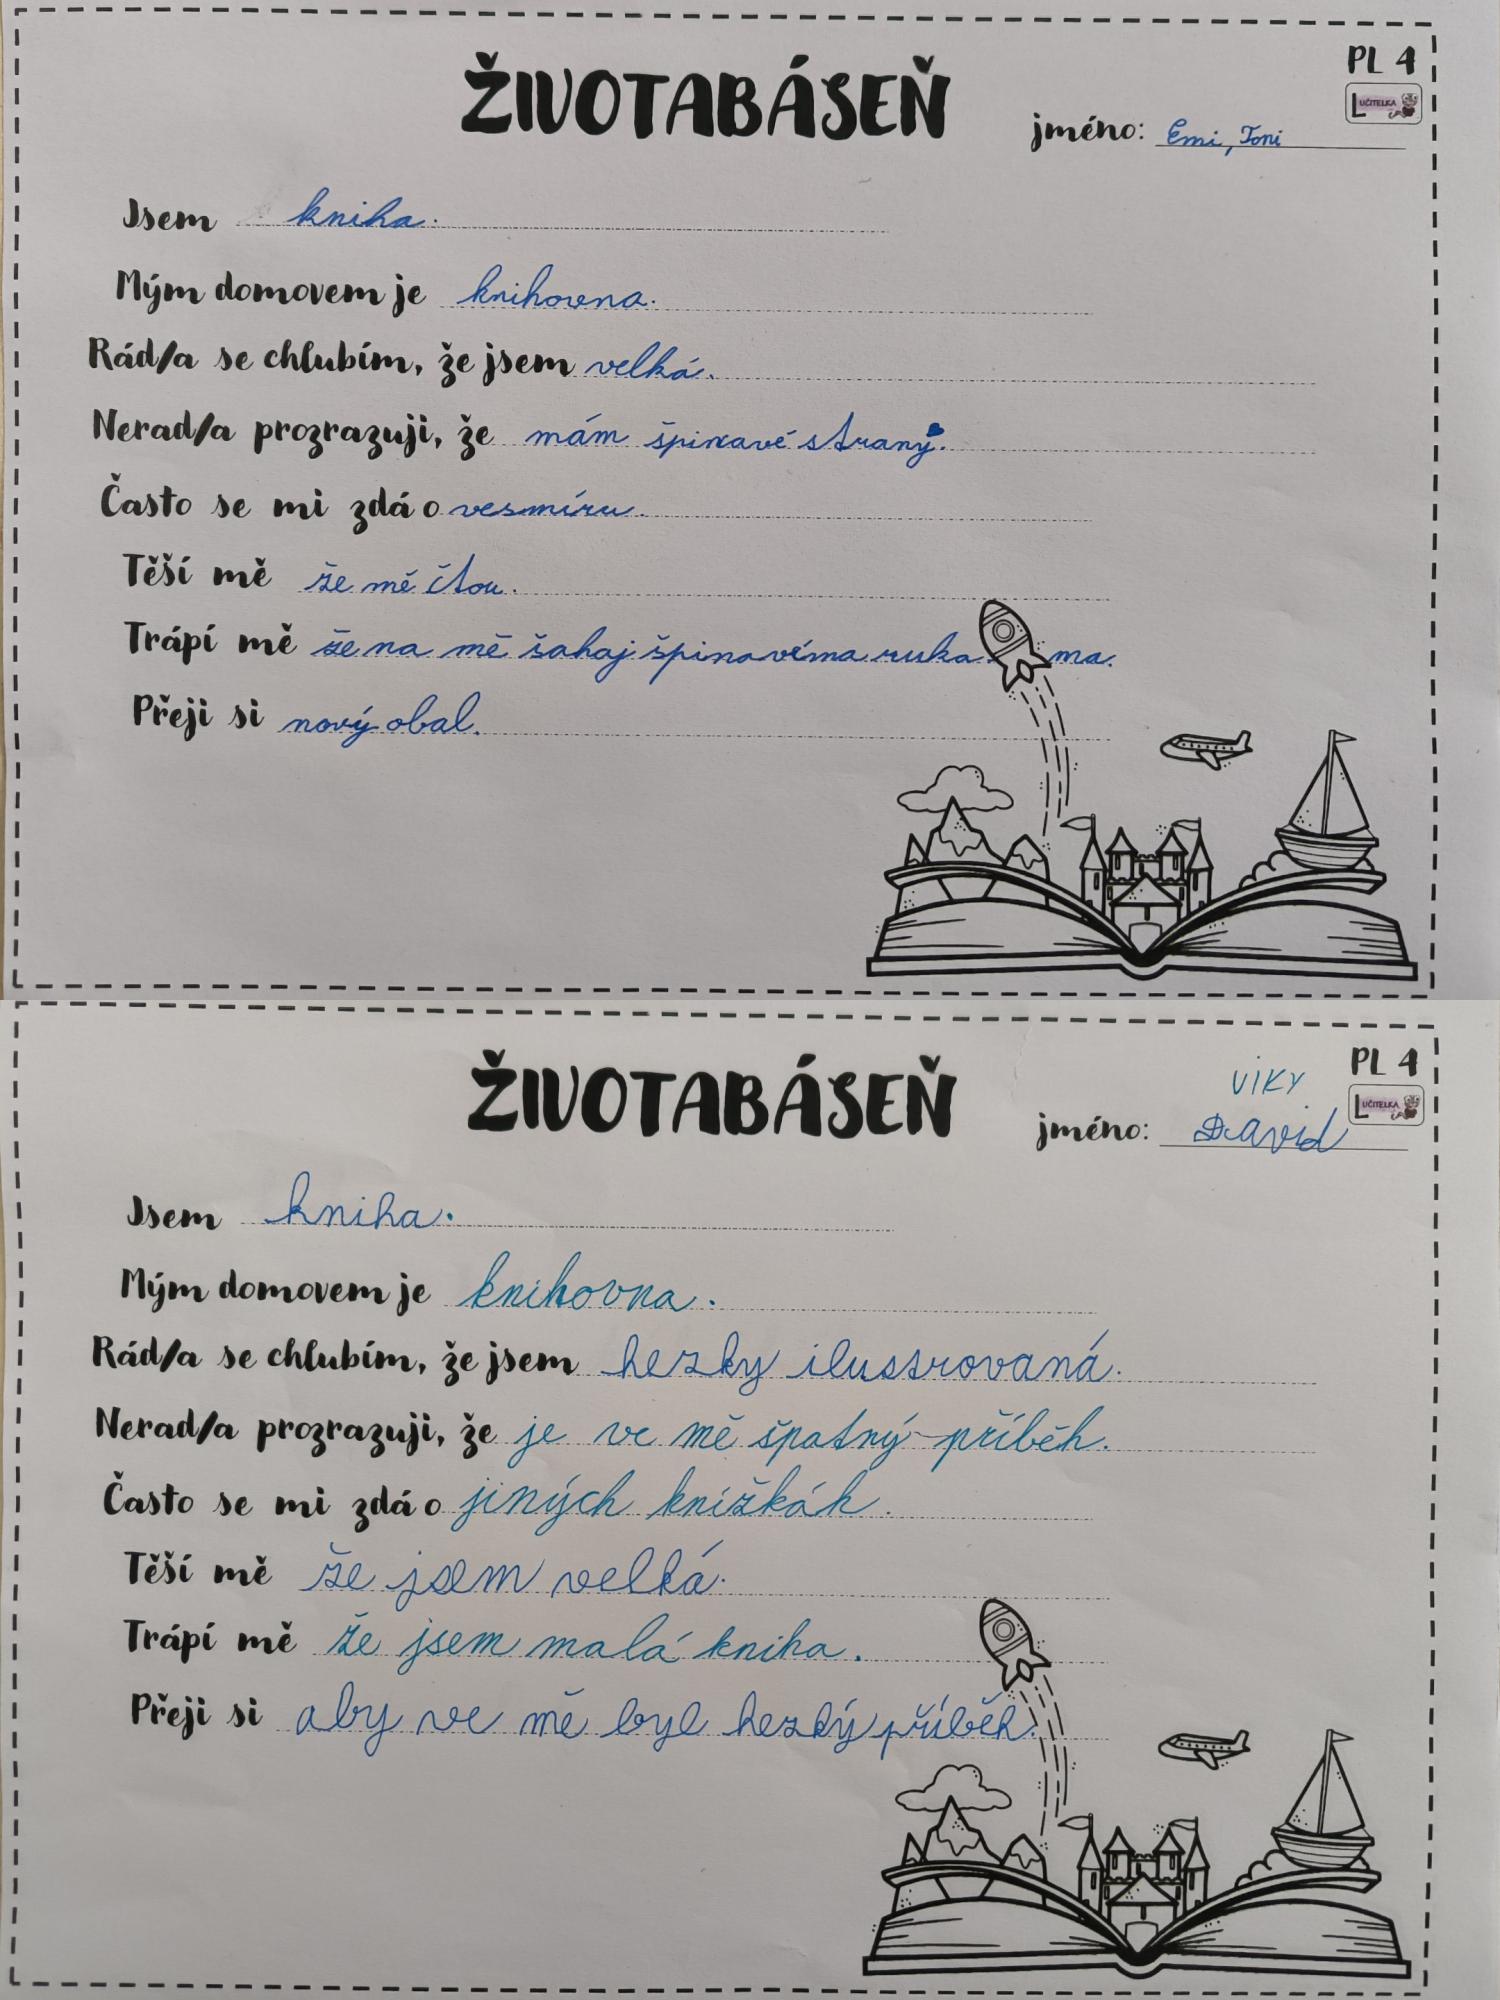 ŽIVOTABÁSEŇ
PL 4
LUČITELKA
jméno: Emi, Toni
Jsem kniha.
Mým domovem je knihovna.
Rád/a se chlubím, že jsem velká.
Nerad/a prozrazuji, že mám špinavé strany.
Často se mi zdá o vesmíru.
Těší mě že mě čtou.
Trápí mě že na mě šahaj špinavíma rukama.
Přeji si nový obal.
ŽIVOTABÁSEŇ
PL 4
LUČITELKA
VIKY
jméno: David
Jsem kniha.
Mým domovem je knihovna.
Rád/a se chlubím, že jsem hezky ilustrovaná.
Nerad/a prozrazuji, že je ve mě špatný příběh.
Často se mi zdá o jiných knížkách.
Těší mě že jsem velká.
Trápí mě že jsem malá kniha.
Přeji si aby ve mě byl hezký příběh.